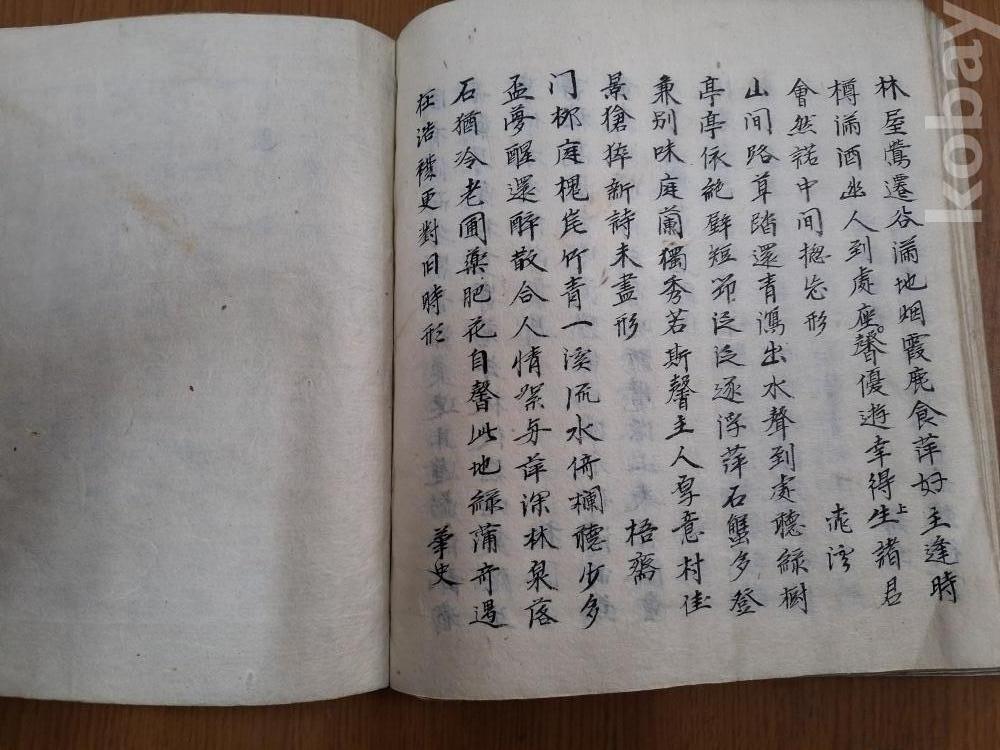 林屋鶯遷谷滿地烟霞鹿食萍好主逢時
樽滿酒幽人到處座馨優遊幸得生上諸君
會然諾中間揔忘形
山間路草踏還青鴻出水聲到處聽綠樹
亭亭依絶壁短笻泛泛逐浮萍石蟹多登
兼別味庭蘭獨秀若斯馨主人厚意村佳
景猝新詩未盡形
梧齋
门柳庭槐岸竹青一溪流水倚欄聽少多
盃夢醒還醉散合人情絮与萍深林泉落
石猶冷老圃藥肥花自馨此地綠蒲奇遇
枉浩更對旧時形
華史
kobay